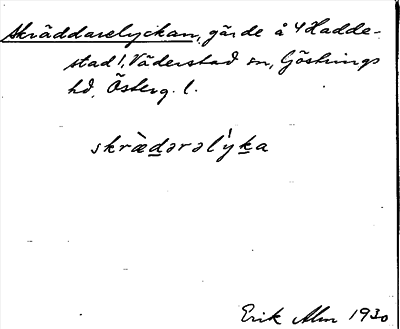 Skräddarelyckan, gärde å 4 Hadde-
stad 1, Väderstad sn, Göstrings
hd, Österg. l.
skrædərəlyka
Erik Alm 1930